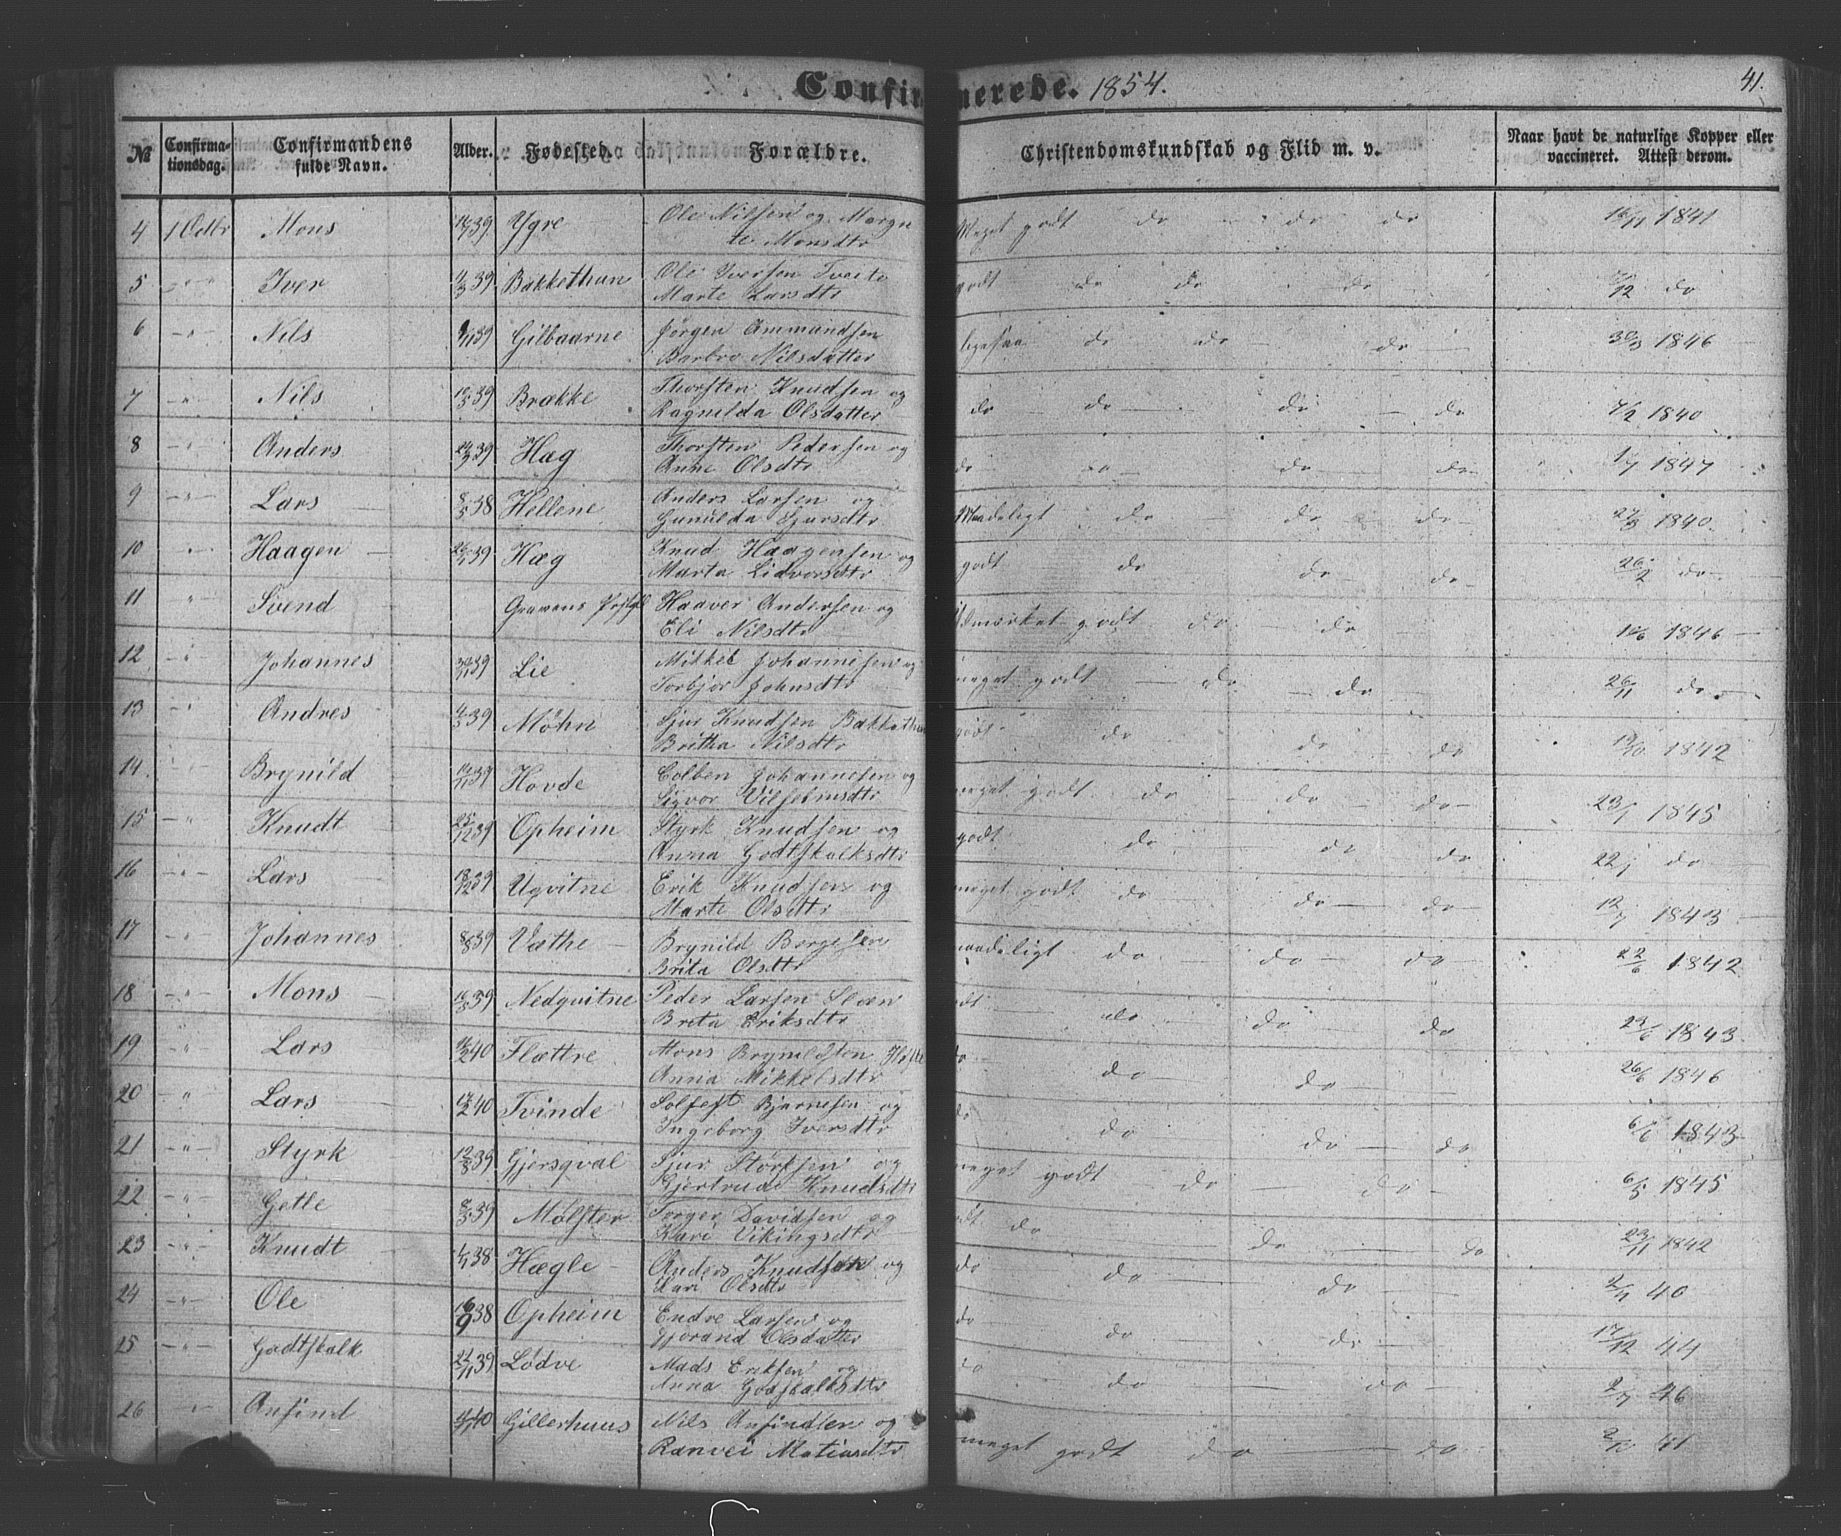 Confirmerede. 1854.
41.
№ Confirmationsdag. Confirmandens fulde Navn. Alder. Fødested. Forældre. Christendomskundskab og Flid m. v. Naar havt de naturlige Kopper eller vaccineret. Attest derom.
4 1 Octbr Mons 39 Ygre Ole Nilsen og Margre
te Monsdtr Meget godt do do do 16/11 1841
5 " Iver 39 Bakkethun Ole Iversen Tveite
Marte Larsdtr godt do do do /12 do
6 " Nils /11 39 Gilbaarne Jörgen Ammundsen
Barbro Nilsdatter ligesaa do do do 30/3 1846
7 " Nils 39 Brække Thorsten Knudsen og
Ragnilda Olsdatter do do do do 7/2 1840
8 " Anders 39 Hæg Thorsten Pedersen og
Anne Olsdtr do do do do 1/7 1847
9 " Lars 8/5 38 Hellene Anders Larsen og
Gunilda Sjursdtr Maadeligt do do do 27/3 1840
10 " Haagen 39 Hæg Knud Haagensen og
Marta Lidvorsdtr godt do do do 26/2 do
11 " Svend Gravens Haaver Andersen og
Eli Nilsdtr Udmærket godt do do 1846
12 " Johannes 30/11 39 Lie Mikkel Johannesen og
Torbjor Johnsdtr meget godt do do do 26/11 do
13 " Andres 4/5 39 Möhn Sjur Knudsen Bakkethun
Britha Nilsdtr godt do do do 19/10 1842
14 Brynild /11 39 Hovde Colben Johannesen og
Sigvor Vilselmsdtr meget godt do do do 23/1 1845
15 " Knudt 25/12 39 Opheim Styrk Knudsen og
Anna Godtskalksdtr godt do do do 22 do
16 " Lars 18/12 39 Ugvitne Erik Knudsen og
Marte Olsdtr meget godt do do do 12/7 1843
17 " Johannes 8/8 39 Væthe Brynild Borgesen
Brita Olsdtr maadeligt do do do 22/6 1842
18 " Mons 39 Nedqvitne Peder Larsen Slæn
Brita Eriksdtr godt do do do 29/6 1843
19 " Lars 40 Flættre Mons Brynildsen
Anna Mikkelsdtr do do do 26/6 1846
20 " Lars 17/2 40 Tvinde Solfest Bjarnesen og
Ingeborg Iversdtr do do do do 6/6 1843
21 " Styrk 12/8 39 Gjersqval Sjur Störksen og
Gjertrude Knudsdtr meget godt do do 6/5 1845
22 " Getle 8/3 39 Mölster Torger Davidsen og
Kari Vikingsdtr godt do do do 23/11 1842
23 " Knudt 38 Hægle Anders Knudsen og
Kari Olsdtr do do do 40
24 " Ole 16/9 38 Opheim Endre Larsen og
Gjorand Olsdatter do do do 17/12 44
25 " Godtskalk 22/11 39 Lödve Mads Eriksen og
Anna Godskalksdtr do do do 2/7 46
26 " Anfind 40 Gillerhuus Nils Anfindsen og
Ranvei Matiasdtr meget godt do do 41